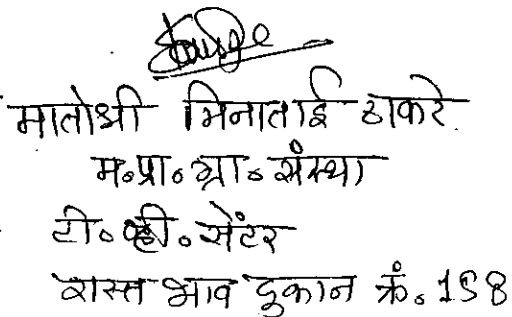 मातोश्री मिनाताई ठाकरे
म.प्रा.ग्रा.संस्था
टी.व्ही.सेंटर
रास्त भाव दुकान क्रं. 158